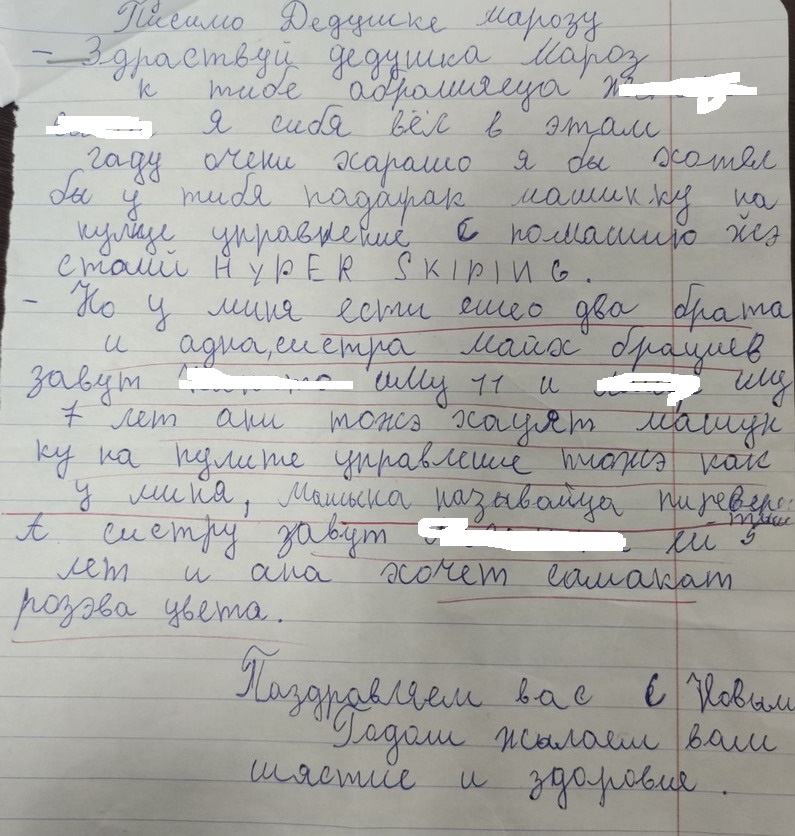 Письмо Дедушке марозу
- Здраствуй дедушка Мароз
к тибе абрашяеца
Я сибя вёл в этам
гаду очени харашо я бы хотял
бы у тибя падарак машинку на
пулце управнение с помашию
HYPER SKIPING.
- Но у миня ести ешео два брата
и адна, систра майх брациев
завут иму 11 и иму
7 лет ани тожэ хацят машун
ку на пулите управление тожэ как
у миня, Машына называйца пиревёр
тыш
А систру завут ей 5
лет и ана хочет самакат
розэва цвета.
Паздравляем вас с Новым
Годом жылаем вам
шястие и здоровие.